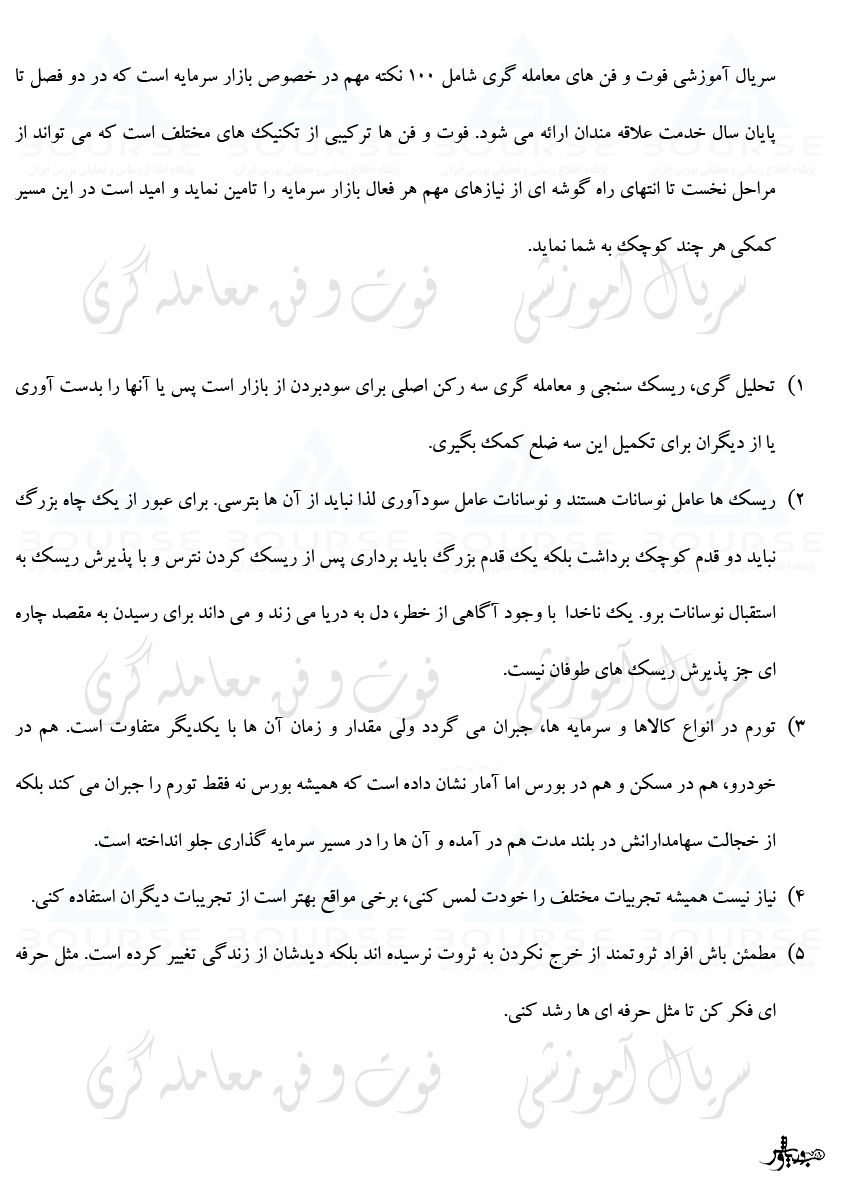 سریال آموزشی فوت و فن های معامله گری شامل ۱۰۰ نکته مهم در خصوص بازار سرمایه است که در دو فصل تا
پایان سال خدمت علاقه مندان ارائه می شود. فوت و فن ها ترکیبی از تکنیک های مختلف است که می تواند از
مراحل نخست تا انتهای راه گوشه ای از نیازهای مهم هر فعال بازار سرمایه را تامین نماید و امید است در این مسیر
کمکی هر چند کوچک به شما نماید.
سریال آموزشی فوت و فن معامله گری
۱) تحلیل گری، ریسک سنجی و معامله گری سه رکن اصلی برای سودبردن از بازار است پس یا آنها را بدست آوری
یا از دیگران برای تکمیل این سه ضلع کمک بگیری.
۲) ریسک ها عامل نوسانات هستند و نوسانات عامل سودآوری لذا نباید از آن ها بترسی. برای عبور از یک چاه بزرگ
نباید دو قدم کوچک برداشت بلکه یک قدم بزرگ باید برداری پس از ریسک کردن نترس و با پذیرش ریسک به
استقبال نوسانات برو. یک ناخدا با وجود آگاهی از خطر، دل به دریا می زند و می داند برای رسیدن به مقصد چاره
ای جز پذیرش ریسک های طوفان نیست.
سریال آموزشی فوت و فن معامله گری
۳) تورم در انواع کالاها و سرمایه ها، جبران می گردد ولی مقدار و زمان آن ها با یکدیگر متفاوت است. هم در
خودرو، هم در مسکن و هم در بورس اما آمار نشان داده است که همیشه بورس نه فقط تورم را جبران می کند بلکه
از خجالت سهامدارانش در بلند مدت هم در آمده و آن ها را در مسیر سرمایه گذاری جلو انداخته است.
۴) نیاز نیست همیشه تجربیات مختلف را خودت لمس کنی، برخی مواقع بهتر است از تجربیات دیگران استفاده کنی.
۵) مطمئن باش افراد ثروتمند از خرج نکردن به ثروت نرسیده اند بلکه دیدشان از زندگی تغییر کرده است. مثل حرفه
ای فکر کن تا مثل حرفه ای ها رشد کنی.
سریال آموزشی فوت و فن معامله گری